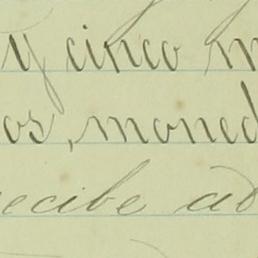 y cinco m
os, moned
recibe ad